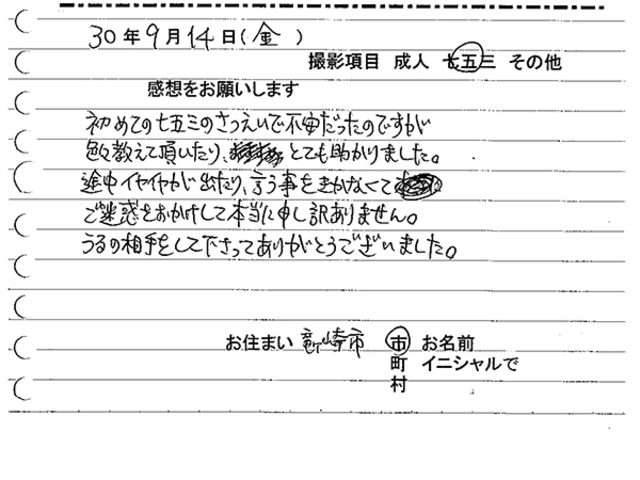 30年9月14日(金)
撮影項目 成人 七五三 その他
感想をお願いします
初めての七五三のさつえいで不安だったのですが
色々教えて頂いたり、とても助かりました。
途中イヤイヤが出たり、言う事をきかなくて
ご迷惑をおかけして本当に申し訳ありません。
うるの相手をして下さってありがとうございました。
お住まい 竜ヶ崎市 市 お名前
町 イニシャルで
村